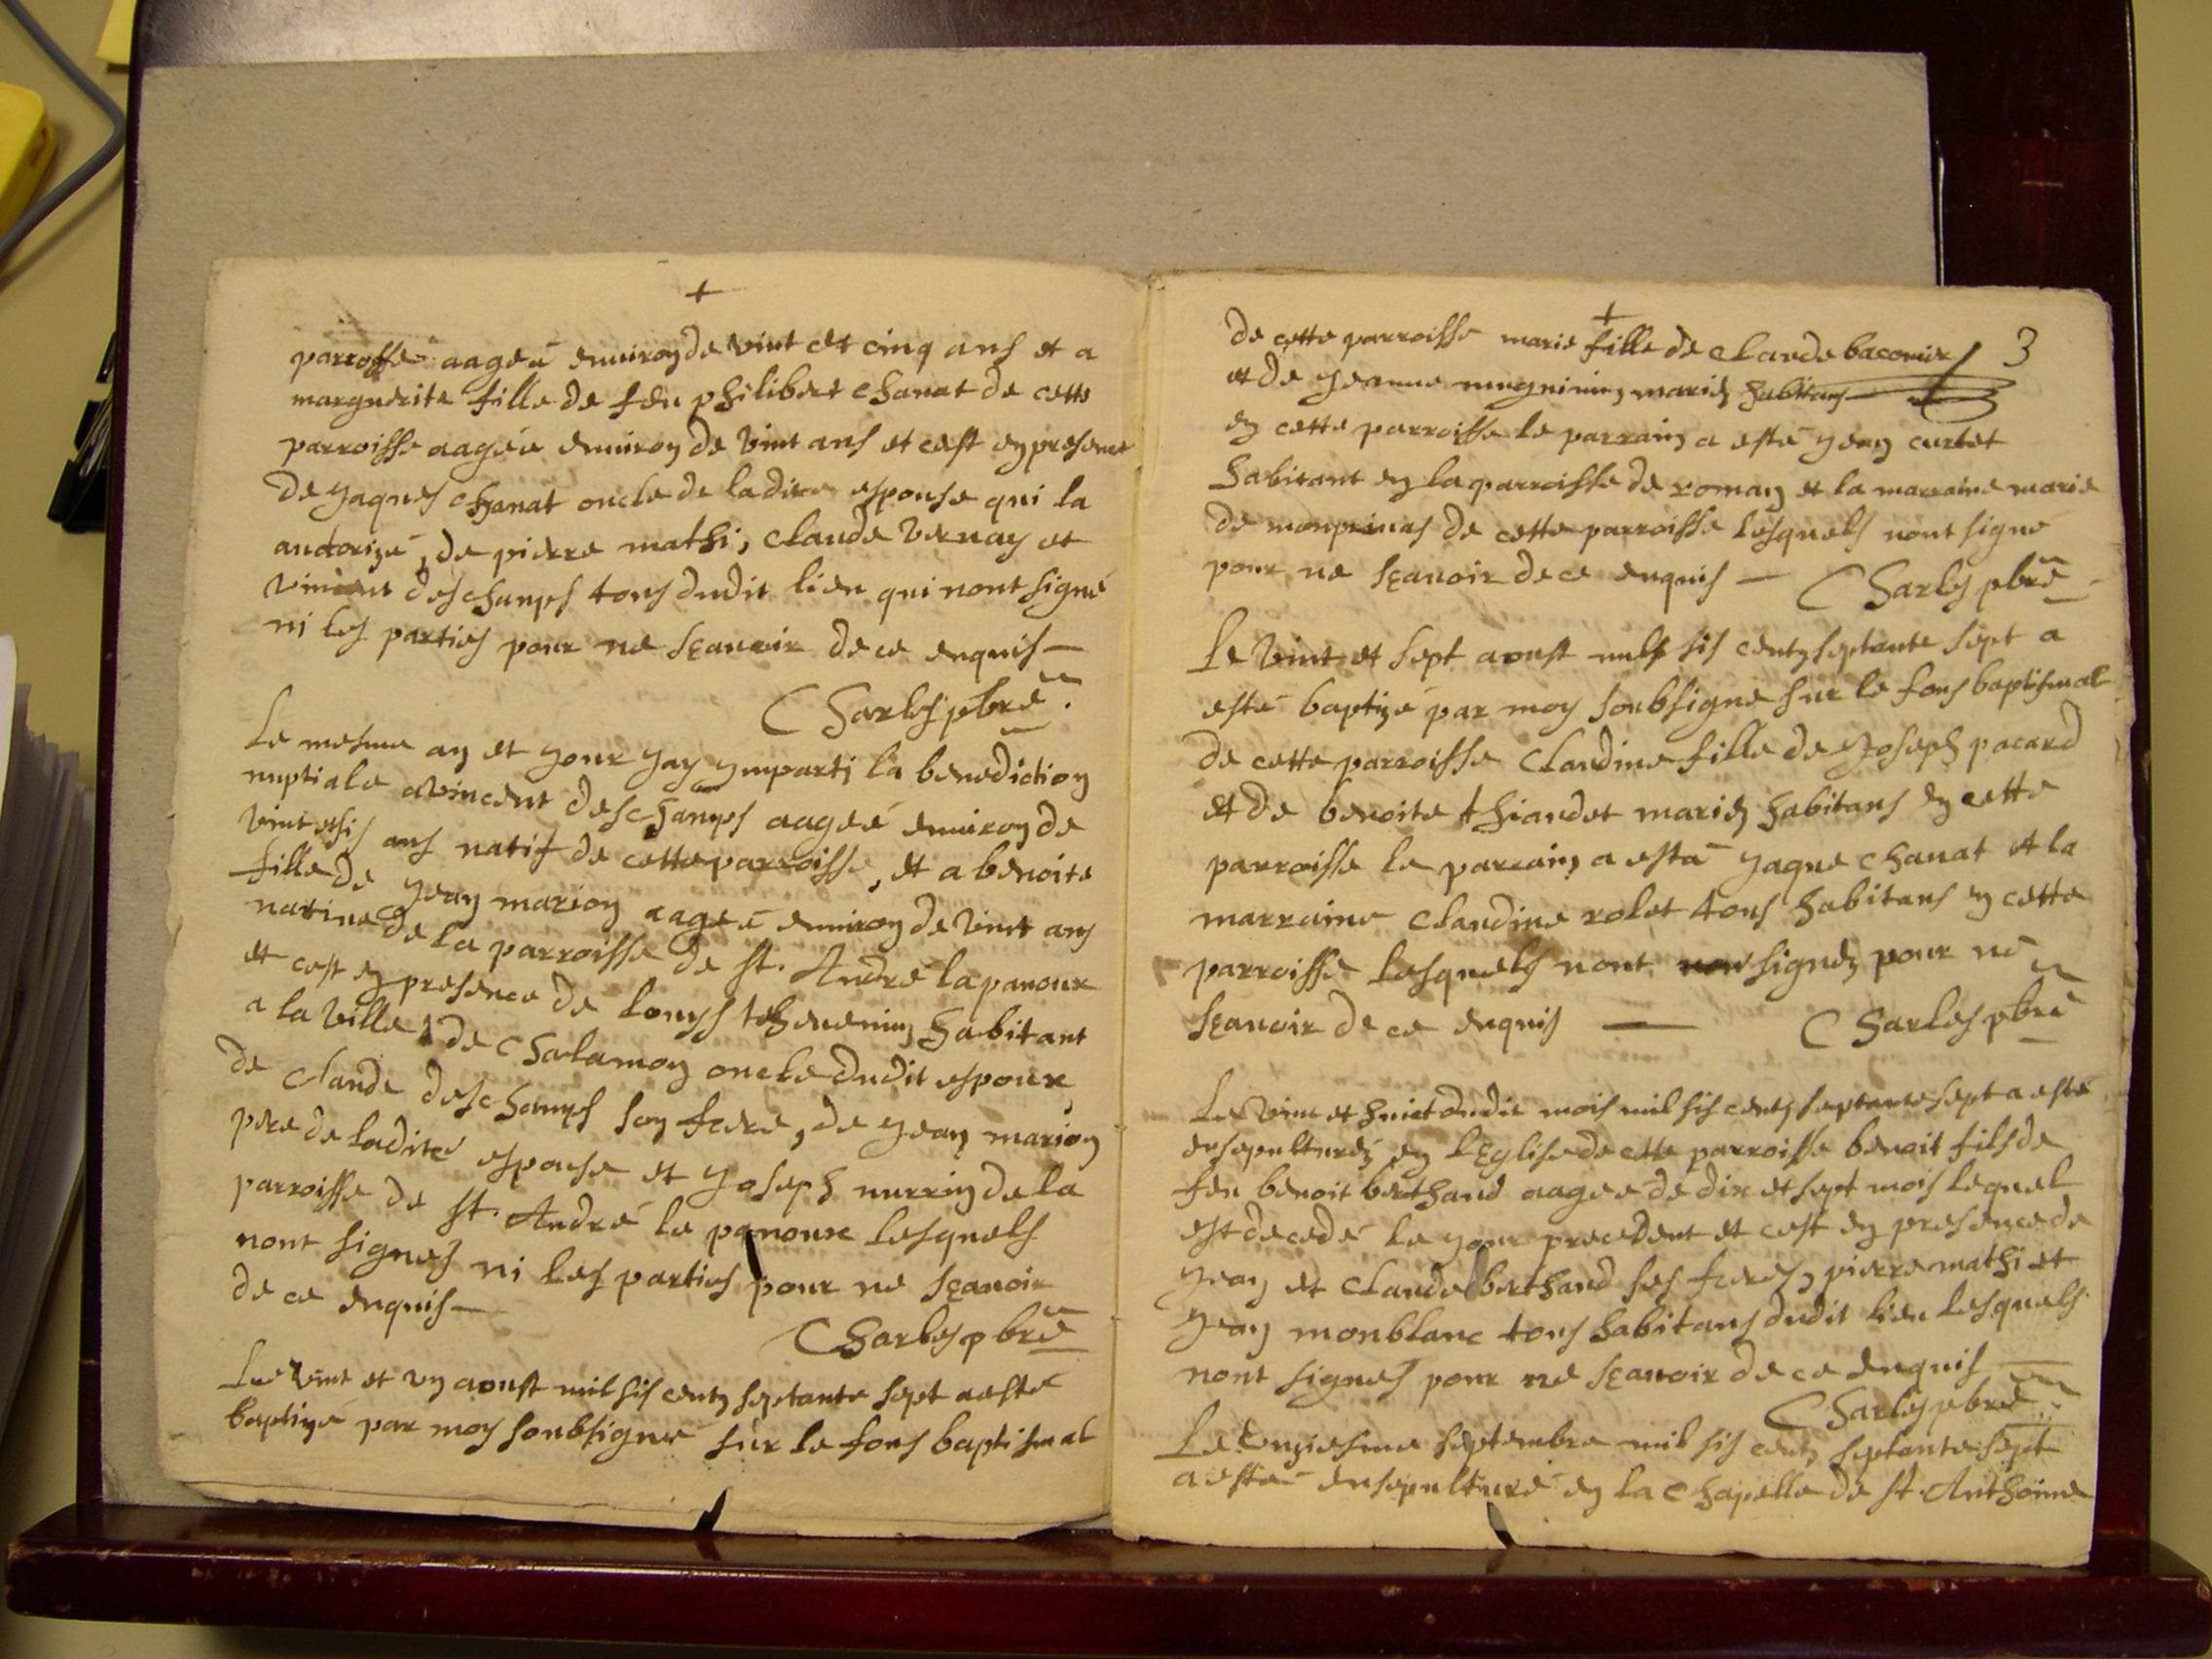 +
parroisse aagéé enuiron de vint et cinq ans et a
marguerite fille de feu philibert chanat de cette
parroisse aagéé enuiron de vint ans et cest en presence
de yaques chanat oncle de ladite espouse qui la
autorizé, de pierre mathi, claude vernay et
vincent deschamps tous dudit lieu qui nont signé
ni les parties pour ne scauoir de ce enquis —
Charles pbre.
Le mesme an et your yay ymparti la benediction
nuptiale a vincent deschamps aagéé enuiron de
vint et sis ans natif de cette parroisse, et a benoite
fille de yean marion aagéé enuiron de vint ans
natiue de la parroisse de st. André lapanoux
et cest en presence de louys thevenin habitant
a la ville de Chalamon oncle dudit espoux,
de claude deschamps son frere, de yean marion
pere de ladite espouse et yoseph murrin de la
parroisse de st. André le panoux lesquels
nont signes ni les parties pour ne scauoir
de ce enquis —
Charles pbre
Le vint et un aoust mil sis cents septante sept a esté
baptizé par moy soubsigné sur le fons baptismal
+
3
de cette parroisse marie fille de claude baconier
et de yeanne mugninin mariez habitans
en cette parroisse le parrain a esté yean curtet
habitant en la parroisse de roman et la marraine marie
de monprinas de cette parroisse lesquels nont signé
pour ne scauoir de ce enquis — Charles pbre
Le vint et sept aoust mil sis cents septante sept a
esté baptizé par moy soubsigne sur le fons baptismal
de cette parroisse claudine fille de yoseph pacard
et de benoite thiandet mariez habitans en cette
parroisse le parrain a esté yaque chanat et la
marraine claudine rolet tous habitans en cette
parroisse lesquels nont signez pour ne
scauoir de ce enquis — Charles pbre
Le vint et huict dudit mois mil sis cents septante sept a esté
ensepulturéz en lEglise de cette parroisse benoit fils de
feu benoit berthaud aagéé de dix et sept mois lequel
est decedé le your precedent et cest en presence de
yean et claude berthaud ses freres, pierre mathi et
yean monblanc tous habitans dudit lieu lesquels
nont signes pour ne scauoir de ce enquis —
Charles pbre
Le septembre mil sis cents septante sept
a esté ensepulturé en la chapelle de st. Anthoine